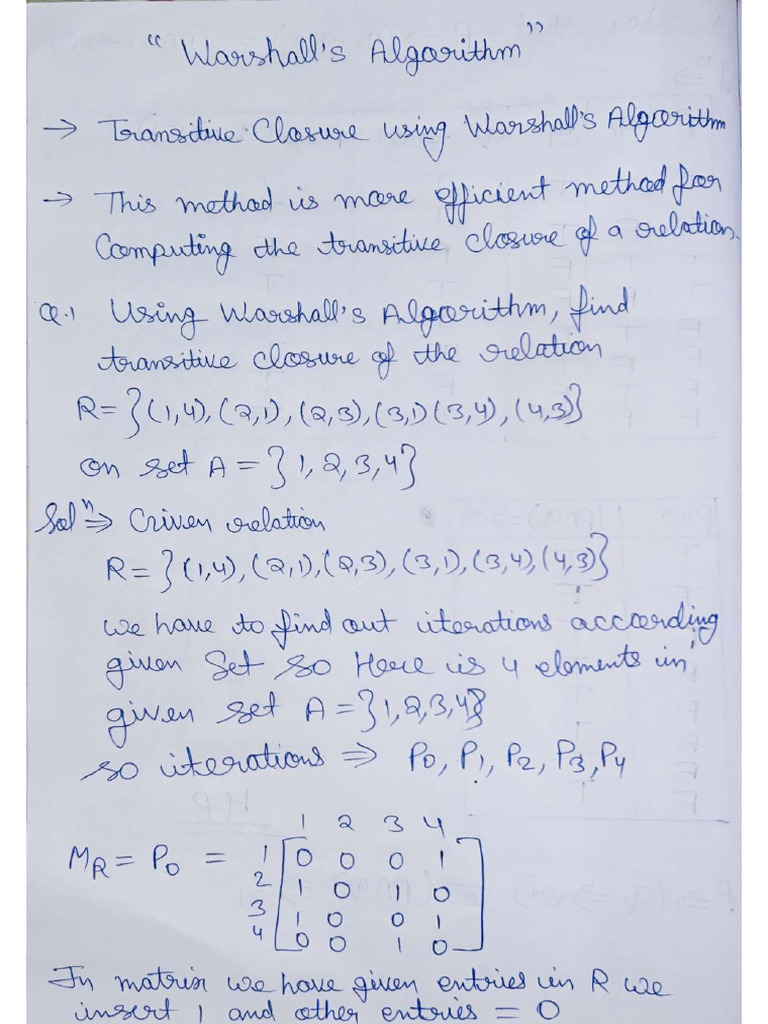 “Warshall's Algorithm”
→ Transitive Closure using Warshall's Algorithm
→ This method is more efficient method for
Computing the transitive closure of a relation.
Q.1 Using Warshall's Algorithm, find
transitive closure of the relation
R={(1,4),(2,1),(2,3),(3,1)(3,4),(4,3)}
on set A={1,2,3,4}
Solⁿ⇒ Given relation
R={(1,4),(2,1),(2,3),(3,1),(3,4),(4,3)}
we have to find out iterations according
given Set so Here is 4 elements in
given set A={1,2,3,4}
so iterations ⇒ P0, P1, P2, P3, P4
1 2 3 4
MR = P0 = 1 [0 0 0 1
2 1 0 1 0
3 1 0 0 1
4 0 0 1 0]
In matrix we have given entries in R we
insert 1 and other entries = 0